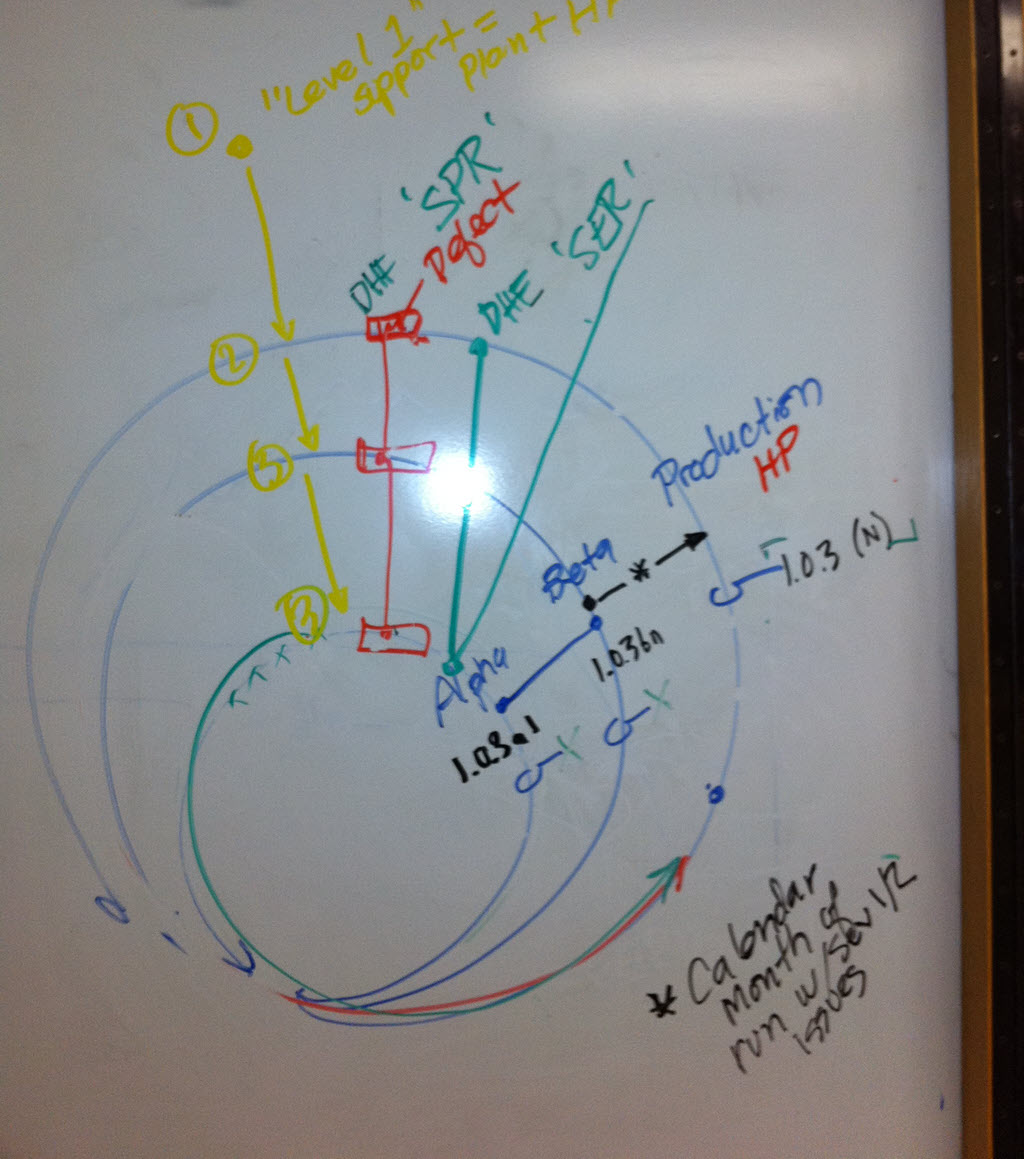 "Level 1"
support =
Plant HP
①
'SPR'
Defect
DHF
DHE 'SER'
②
Production
HP
③
Beta
*
1.0.3 (N)
③
1.0.3bn
Alpha
X X X
X
1.0.3a1
X
* Calendar
month of
run w/ Sev 1/2
issues